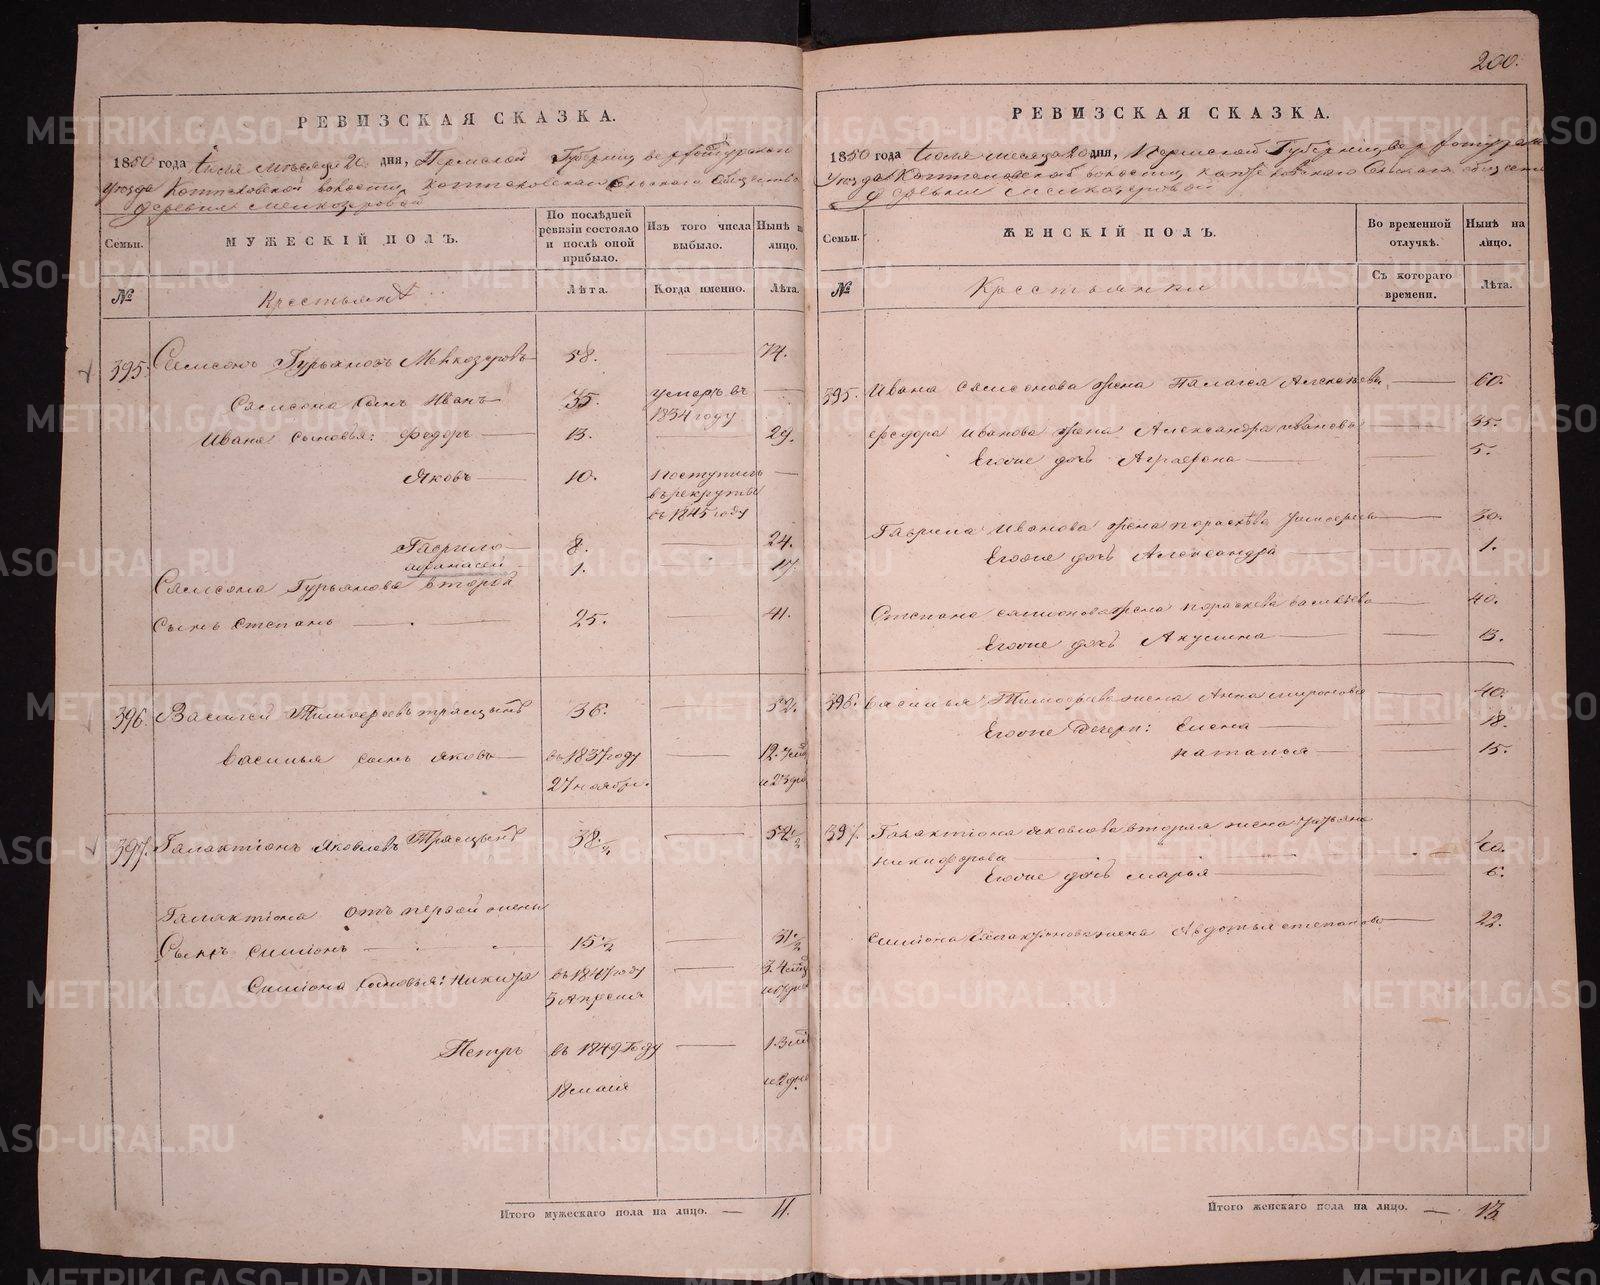 200.
РЕВИЗСКАЯ СКАЗКА.
1850 года Июля месяца 20 дня, Пермской Губернии Верхотурскаго
Уезда Коптеловской волости, Коптеловскаго Сельскаго Общества
деревни Мелкозеровой
Семьи.
МУЖЕСКІЙ ПОЛЪ.
По послѣдней ревизіи состояло и послѣ оной прибыло.
Изъ того числа выбыло.
Нынѣ на лицо.
№
Крестьяне
Лѣта.
Когда именно.
Лѣта.
395. Самсонъ Гурьяновъ Мелкозеровъ 58. 74.
Самсона сынъ Иванъ 35. умеръ въ 1834 году
Ивана сыновья: Федоръ 13. 29.
Яковъ 10. Поступилъ въ рекруты въ 1845 году
Гаврило 8. 24.
Афанасей 1. 17.
Самсона Гурьянова второй
сынъ Степанъ 25. 41.
396. Василей Тимофеевъ Трясцынъ 36. 52.
Василья сынъ Яковъ въ 1837 году 27 ноября. 12. 7 мѣ и 23 дн
397. Галактіонъ Яковлевъ Трясцынъ 38 1/2 54 1/2
Галактіона отъ первой жены
Сынъ Симіонъ 15 1/2 31 1/2
Симіона сыновья: Никита въ 1847 году 5 Апреля
Петръ въ 1849 году 18 маія 1. 3 мѣ и 2 дн
Итого мужескаго пола на лицо. 11.
РЕВИЗСКАЯ СКАЗКА.
1850 года Июля месяца 20 дня, Пермской Губернии Верхотурскаго
Уезда Коптеловской волости, Коптеловскаго Сельскаго общества
деревни Мелкозеровой
Семьи.
ЖЕНСКІЙ ПОЛЪ.
Во временной отлучкѣ.
Нынѣ на лицо.
№
Крестьянки
Съ котораго времени.
Лѣта.
395. Ивана Самсонова жена Палагея Алексѣева 60.
Федора Иванова жена Александра Иванова 35.
Егоже дочь Аграфена 5.
Гаврила Иванова жена Парасковья Тимофеева 30.
Егоже дочь Александра 1.
Степана Самсонова жена Парасковья Васильева 40.
Егоже дочь Акулина 13.
396. Василья Тимофеева жена Анна Миронова 40.
Егоже дочери: Елена 18.
Наталья 15.
397. Галактіона Яковлева вторая жена Ульяна
Никифорова 40.
Егоже дочь Марья 6.
Симіона Галактіонова жена Авдотья Степанова 22.
Итого женскаго пола на лицо. 13
METRIKI.GASO-URAL.RU